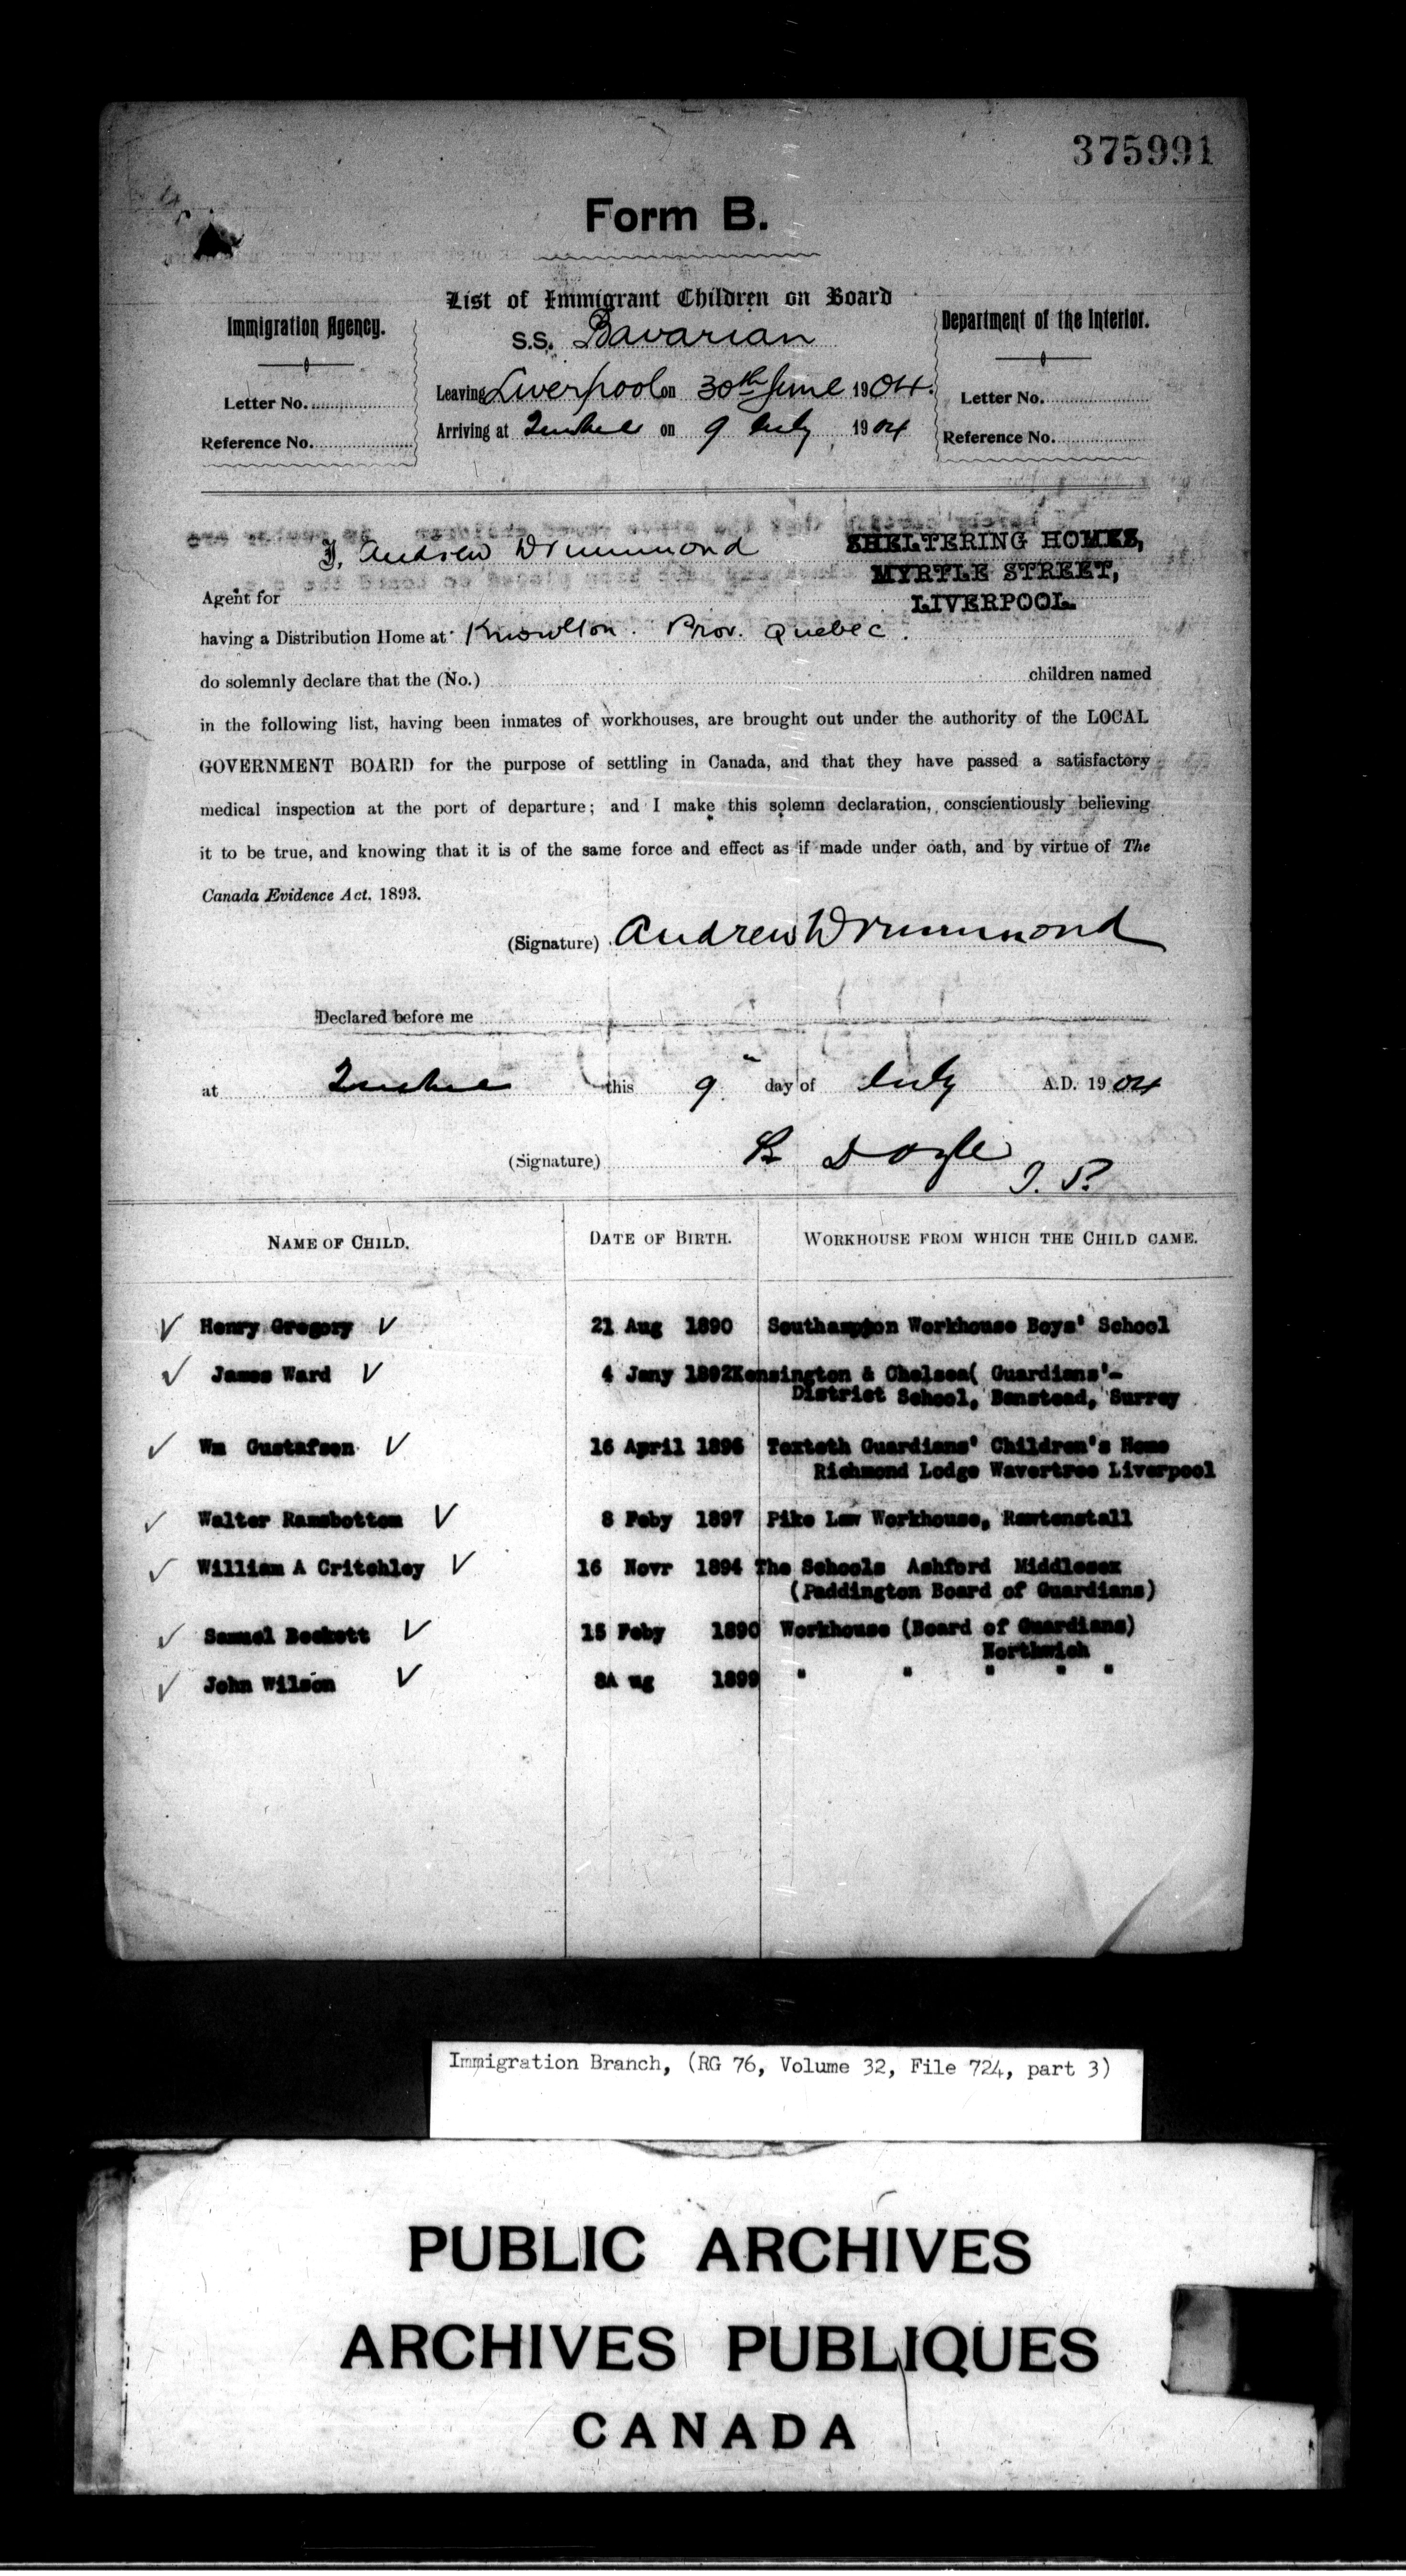 375991
Form B.
List of Immigrant Children on Board
Immigration Agency.
S.S. Bavarian
Department of the Interior.
Letter No.
Leaving Liverpool on 30th June 1904.
Letter No.
Reference No.
Arriving at Quebec on 9 July 1904
Reference No.
I, Andrew Drummond
SHELTERING HOMES,
MYRTLE STREET,
LIVERPOOL.
Agent for
having a Distribution Home at Knowlton. Prov. Quebec.
do solemnly declare that the (No.) children named
in the following list, having been inmates of workhouses, are brought out under the authority of the LOCAL
GOVERNMENT BOARD for the purpose of settling in Canada, and that they have passed a satisfactory
medical inspection at the port of departure; and I make this solemn declaration, conscientiously believing
it to be true, and knowing that it is of the same force and effect as if made under oath, and by virtue of The
Canada Evidence Act, 1893.
(Signature) Andrew Drummond
Declared before me
at Quebec this 9" day of July A.D. 1904
(Signature) Doyle
J. P.
NAME OF CHILD. DATE OF BIRTH. WORKHOUSE FROM WHICH THE CHILD CAME.
Henry Gregory 21 Aug 1890 Southampton Workhouse Boys' School
James Ward 4 Jany 1892 Kensington & Chelsea( Guardians'-
District School, Banstead, Surrey
Wm Gustafsen 16 April 1896 Toxteth Guardians' Children's Home
Richmond Lodge Wavertree Liverpool
Walter Ramsbottom 8 Feby 1897 Pike Law Workhouse, Rawtenstall
William A Critchley 16 Novr 1894 The Schools Ashford Middlesex
(Paddington Board of Guardians)
Samuel Beckett 15 Feby 1890 Workhouse (Board of Guardians)
Northwich
John Wilson 8A ug 1899 " " " " "
Immigration Branch, (RG 76, Volume 32, File 724, part 3)
PUBLIC ARCHIVES
ARCHIVES PUBLIQUES
CANADA